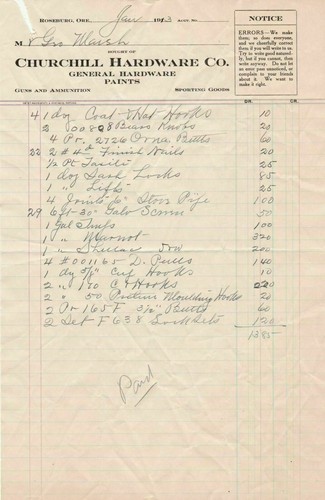 ROSEBURG, ORE. Jan 191 ACCT. NO.
M Geo Marsh
BOUGHT OF
CHURCHILL HARDWARE CO.
GENERAL HARDWARE
PAINTS
GUNS AND AMMUNITION SPORTING GOODS
NOTICE
ERRORS—We make them; so does everyone, and we cheerfully correct them if you will write to us. Try to write good naturedly, but if you cannot, then write anyway. Do not let an error pass unnoticed, or complain to your friends about it. We want to make it right.
DR. CR.
4 1 doz Coat & Hat Hooks 10
2 00828 Brass Knobs 20
4 Pr. 2726 Orna Butts 60
22 2 # 4d Finish Nails 20
1/2 Pt 25
1 doz Sash Locks 85
1 " Lifts 25
4 Joints 6" Stove Pipe 100
29 6 ft 30" Galv Screen 50
1 Gal Turps 100
1 " 320
1 " Shellac 200
4 # 001165 D. Pulls 140
1 dz 5/8" Cup Hooks 10
2 " 190 C & Hooks
2 " 50 Moulding Hooks 20
2 Pr 165F 3 1/2" Butts 60
2 Set F 638 Lock Sets 120
1385
Paid